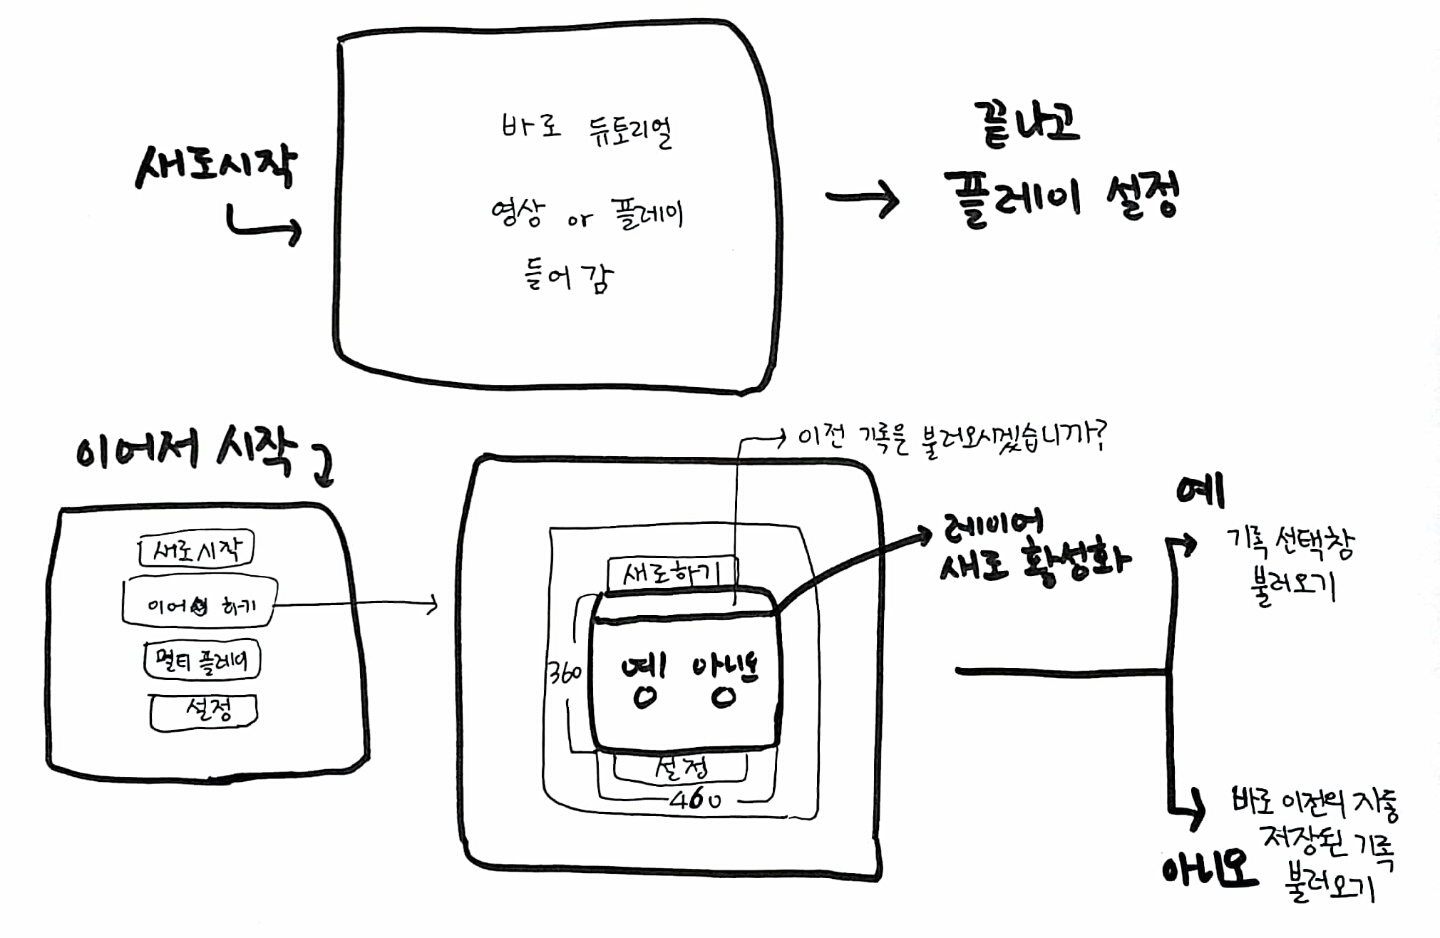 새로시작
바로 듀토리얼
영상 or 플레이
들어감
끝나고
플레이 설정
이어저 시작
새로시작
이어 하기
멀티 플레이
설정
이전 기록은 불러오시겠습니까?
새로하기
360
예 아니오
설정
460
레이어
새로 황성화
예
기록 선택창
불러오기
바로 이전의 자동
저장된 기록
불러오기
아니오